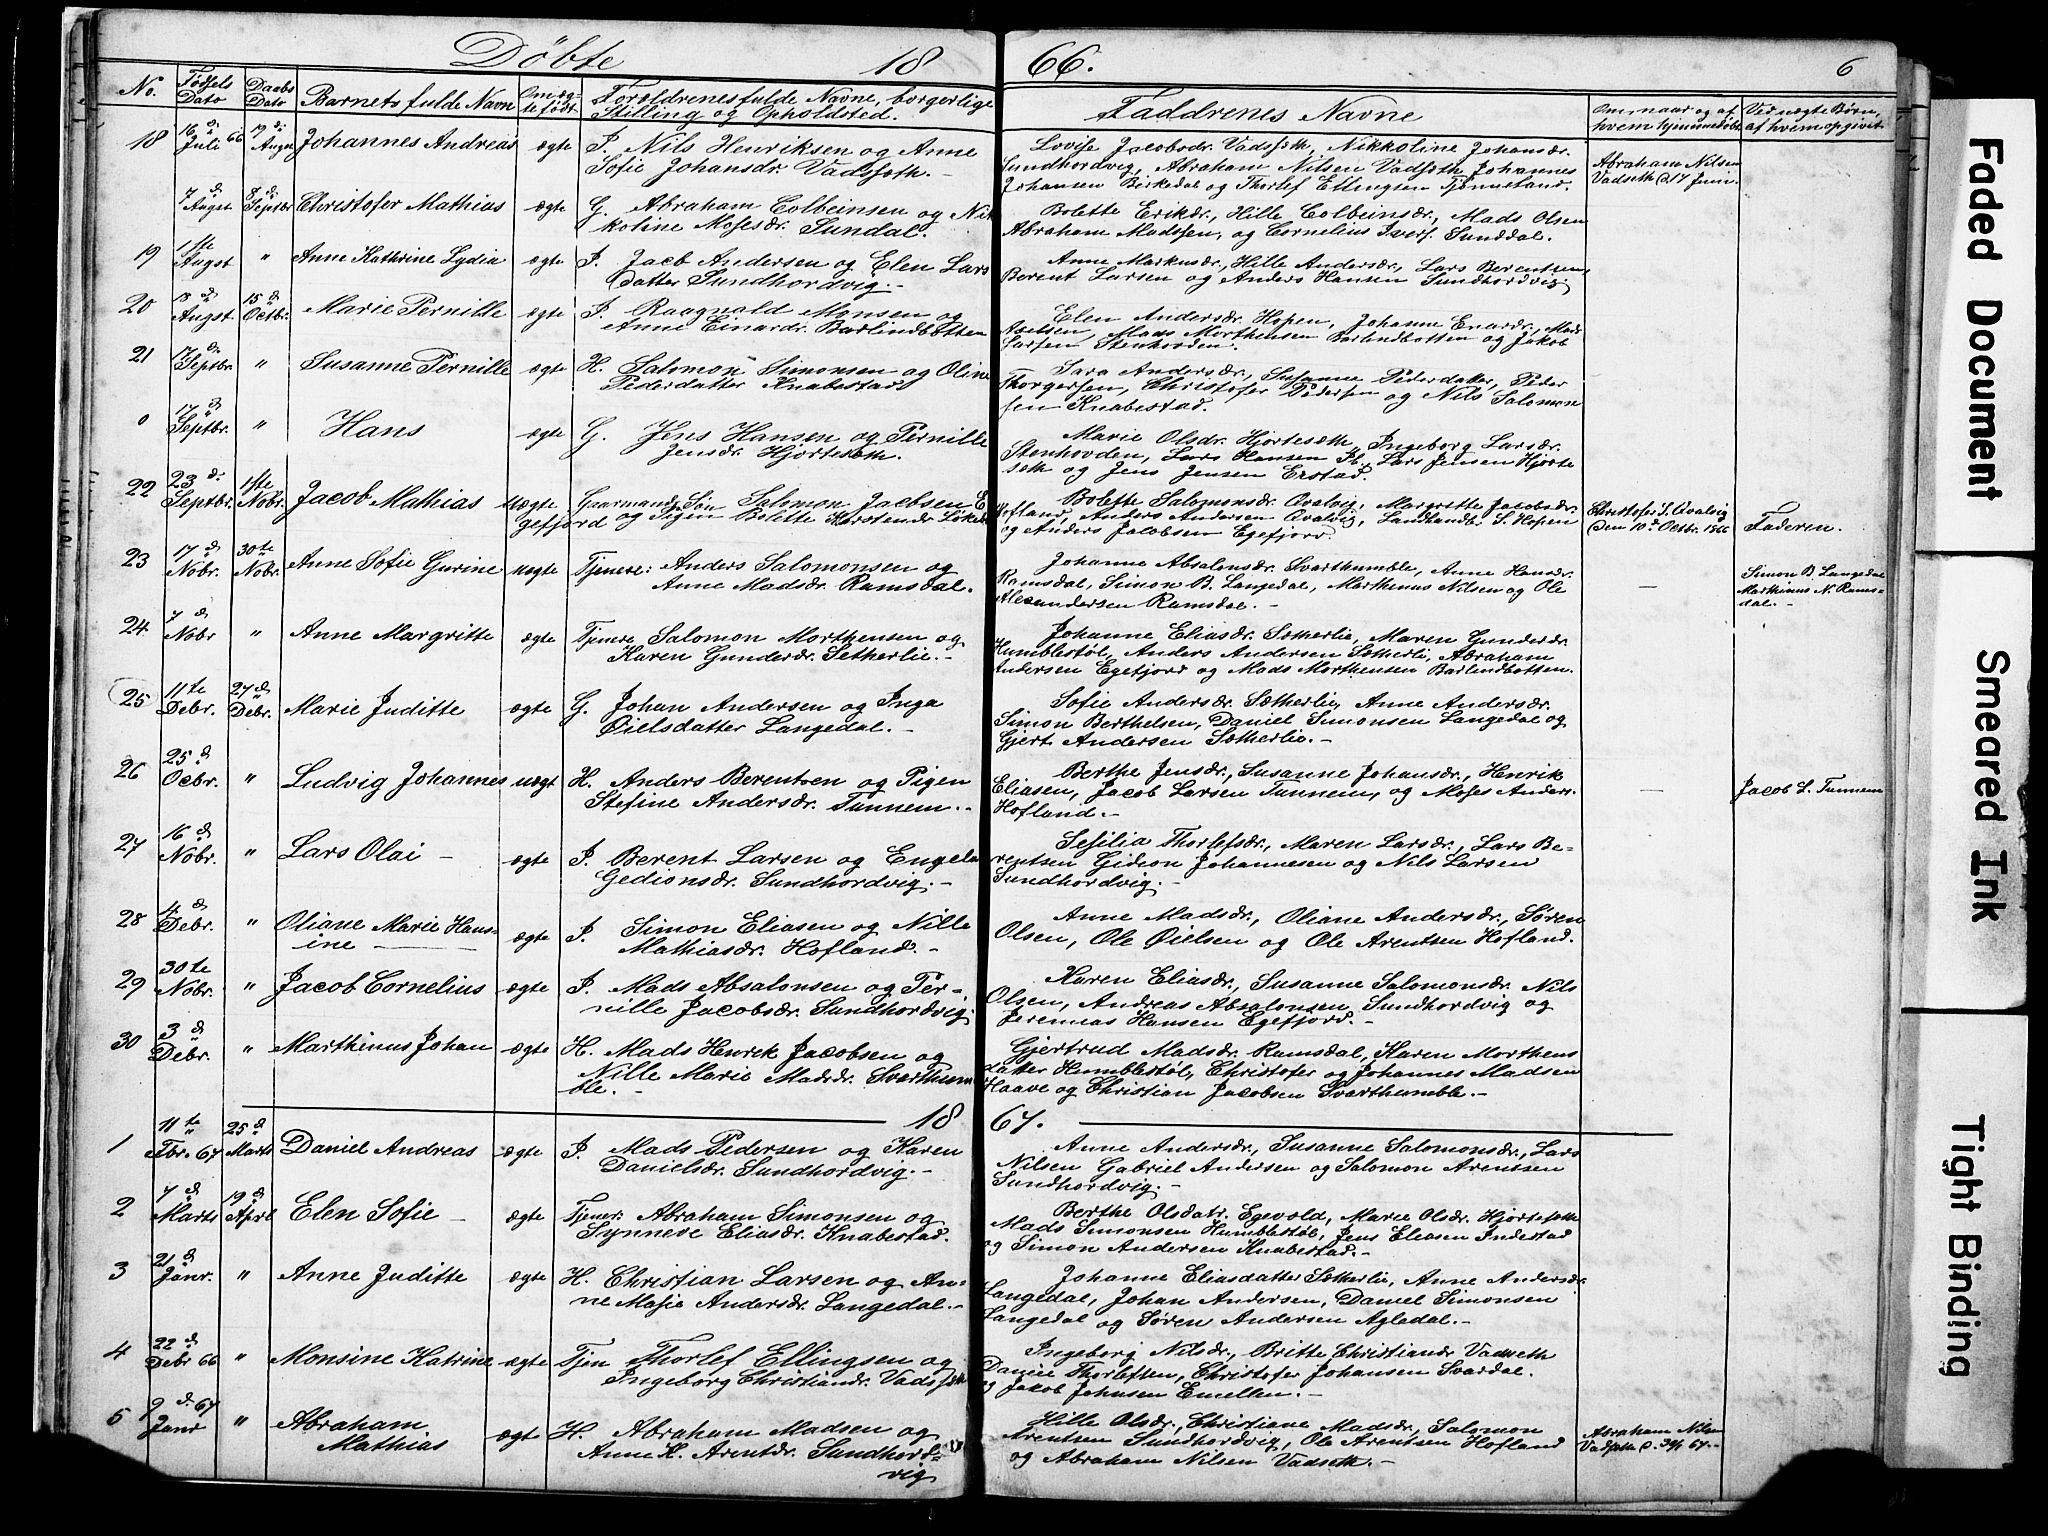 Döbte 18 66. 6
No. Fødsels Dato Daabs Dato Barnets fulde Navn Om æg-te født. Foroldrenes fulde Navne, borgerlige Stilling og Opholdsted. Faddrenes Navne Om, naar og af hvem hjemmedøbt Ved uægte Børn, af hvem opgivet
18 16 d Juli 66 19 d. Augu Johannes Andreas ægte I. Nils Henriksen og Anne
Sofie Johansdr. Vadsseth. -
Lovise Jacobsdr. Vadsseth, Nikkoline Johansdr.
Sundhordvig, Abraham Nilsen Vadseth, Johannes
Johansen Birkedal og Thorlef Ellingsen Tjønneland.
Abraham Nilsen
Vadseth d. 17 Juni.
7 d. Augst 8 d. Septbr Christofer Mathias ægte G. Abraham Colbeinsen og Nik
koline Mosesdr. Sundal.
Bolette Eriksdr., Hille Colbeinsdr., Mads Olsen
Abraham Madssen, og Cornelius Ivers. Sunddal.
19 1ste Augst " Anne Kathrine Lydia ægte I. Jacob Andersen og Elen Lars
Datter Sundhordvig. -
Anne Markusdr., Hille Andersdr., Lars Berentsen,
Berent Larsen og Anders Hansen Sundhordvig.
20 13 d Augst. 15 d Octbr. Marie Pernille ægte I. Raagnald Monsen og
Anne Einardr. Barlindbotten
Elen Andersdr. Hopen, Johanne Enardr., Mads
Axelsen, Mads Morthensen Barlindbotten og Jakob
Larsen Stenhovden.
21 17 d. Septbr. " Susanne Pernille ægte H. Salomon Simonsen og Oline
Pederdatter Knabestad
Sara Andersdr., Susanne Pederdatter, Peder
Thorgersen, Christofer Pedersen og Nils Salomon
sen Knabestad.
0 17 d Septbr. " Hans ægte G. Jens Hansen og Pernille
Jensdr. Hjorteseth.
Marie Olsdr. Hjorteseth, Ingeborg Larsdr.
Stenhovden, Lars Hansen Lars Jensen Hjorte
seth og Jens Jensen Erstad.
22 23 d. Septbr. 1ste Nobr. Jacob Mathias uægte Gaarmands Søn Salomon Jacbsen E
gefjord og Pigen Bolette Kerstendr.
Bolette Salomonsdr. Qvalvig, Margrette Jacobsdr.
Hofland, Anders Andersen Qvalvig, Landhandl. S. Hopen
og Anders Jacobsen Egefjord.
Christofer S. Qvalvig
Den 10 d Octbr. 1866 Faderen.
23 17 d Nobr. 30te Nobr. Anne Sofie Gurine uægte Tjenere: Anders Salomonsen og
Anne Madsdr. Ramsdal.
Johanne Absalonsdr. Svarthumble, Anne Hansdr.
Ramsdal, Simon B. Langedal, Marthinus Nilsen og Ole
Alexandersen Ramsdal. -
—
Simon B. Langedal
Marthinus N. Rams-
dal. -
24 7 d Nobr " Anne Margritte ægte Tjenere Salomon Morthensen og
Karen Gunderdr. Setherlie. -
Johanne Eliasdr. Sætherlie, Maren Gunderdr.
Humblestøl, Anders Andersen Sætherli, Abraham
Andersen Egefjord og Mads Morthensen Barlindbotten.
25 11te Debr. 27 d Debr. Marie Juditte ægte G. Johan Andersen og Inga
Øielsdatter Langedal. -
Sofie Andersdr. Sætherlie, Anne Andersdr.
Simon Berthelsen, Daniel Simonsen Langedal og
Gjert Andersen Sætherlie. -
26 25 d Ocbr. " Ludvig Johannes uægt H. Anders Berentsen og Pigen
Stefine Andersdr. Tunnem. -
Berthe Jensdr., Susanne Johansdr., Henrik
Eliasen, Jacob Larsen Tunnem, og Moses Anders.
Hofland. -
—
Jacob L. Tunnem
27 16 d Nobr. " Lars Olai - ægte I. Berent Larsen og Engela
Gedionsdr. Sundhordvig. -
Sesilia Thorlefsdr., Maren Larsdr., Lars Be-
rentsen Gideon Johannesen og Nils Larsen
Sundhordvig. -
28 4 d Debr. " Oliane Marie Hans-
ine — ægte I. Simon Eliasen og Nille
Mathiasdr. Hofland. -
Anne Madsdr., Oliane Andersdr., Søren
Olsen, Ole Øielsen og Ole Arentsen Hofland.
29 30te Nobr. " Jacob Cornelius ægte I. Mads Absalonsen og Per-
nille Jacobsdr. Sundhordvig.
Karen Eliasdr., Susanne Salomonsdr. Nils
Olsen, Andreas Absalonsen, Sundhordvig og
Jeremias Hansen Egefjord. -
30 3 d Debr. " Marthinus Johan ægte H. Mads Henrik Jacobsen og
Nille Marie Madsdr. Svarthum
ble. -
Gjertrud Madsdr. Ramsdal, Karen Morthens
datter Humblestøl, Christofer og Johannes Madsen
Haave og Christian Jacobsen Svarthumble. -
18 67.
1 11te Fbr. 67 25 d Marts Daniel Andreas ægte I. Mads Pedersen og Karen
Danielsdr. Sundhordvig. -
Anne Andersdr., Susanne Salomonsdr., Lars
Nilsen Gabriel Andersen og Salomon Arentsen
Sundhordvig. -
2 7 d Marts 19 d Aprl Elen Sofie - ægte Tjener: Abraham Simonsen og
Synneve Eliasdr. Knabestad.
Berthe Olsdatr. Egevold, Marie Olsdr. Hjorteseth
Mads Simonsen Humblestøl, Jens Eleasen Indestad
og Simon Andersen Knabestad. -
3 21 d Janr. " Anne Juditte ægte H. Christian Larsen og An-
ne Marie Andersdr. Langedal. -
Johanne Eliasdatter Sætherlie, Anne Andersdr.
Langedal, Johan Andersen, Daniel Simonsen
Langedal og Søren Andersen Agledal. -
4 22 d Debr 66 " Monsine Katrine ægte Tjen Thorlef Ellingsen og
Ingeborg Christiandr. Vadseth
Ingeborg Nilsdr., Britte Christiandr Vadseth
Daniel Thorlefsen, Christofer Johansen Svardal.
og Jakob Johnsen Emellem. -
5 9 d. 67 Janr " Abraham
Mathias ægte H. Abraham Madsen og
Anne K. Arentdr. Sundhord-
vig
Hille Olsdr., Christiane Madsdr., Salomon
Arentsen Sundhordvig, Ole Arentsen Hofland
og Abraham Nilsen Vadseth. -
Abraham Nilsen
Vadseth d. 67. -
Faded Document
Smeared Ink
Tight Binding